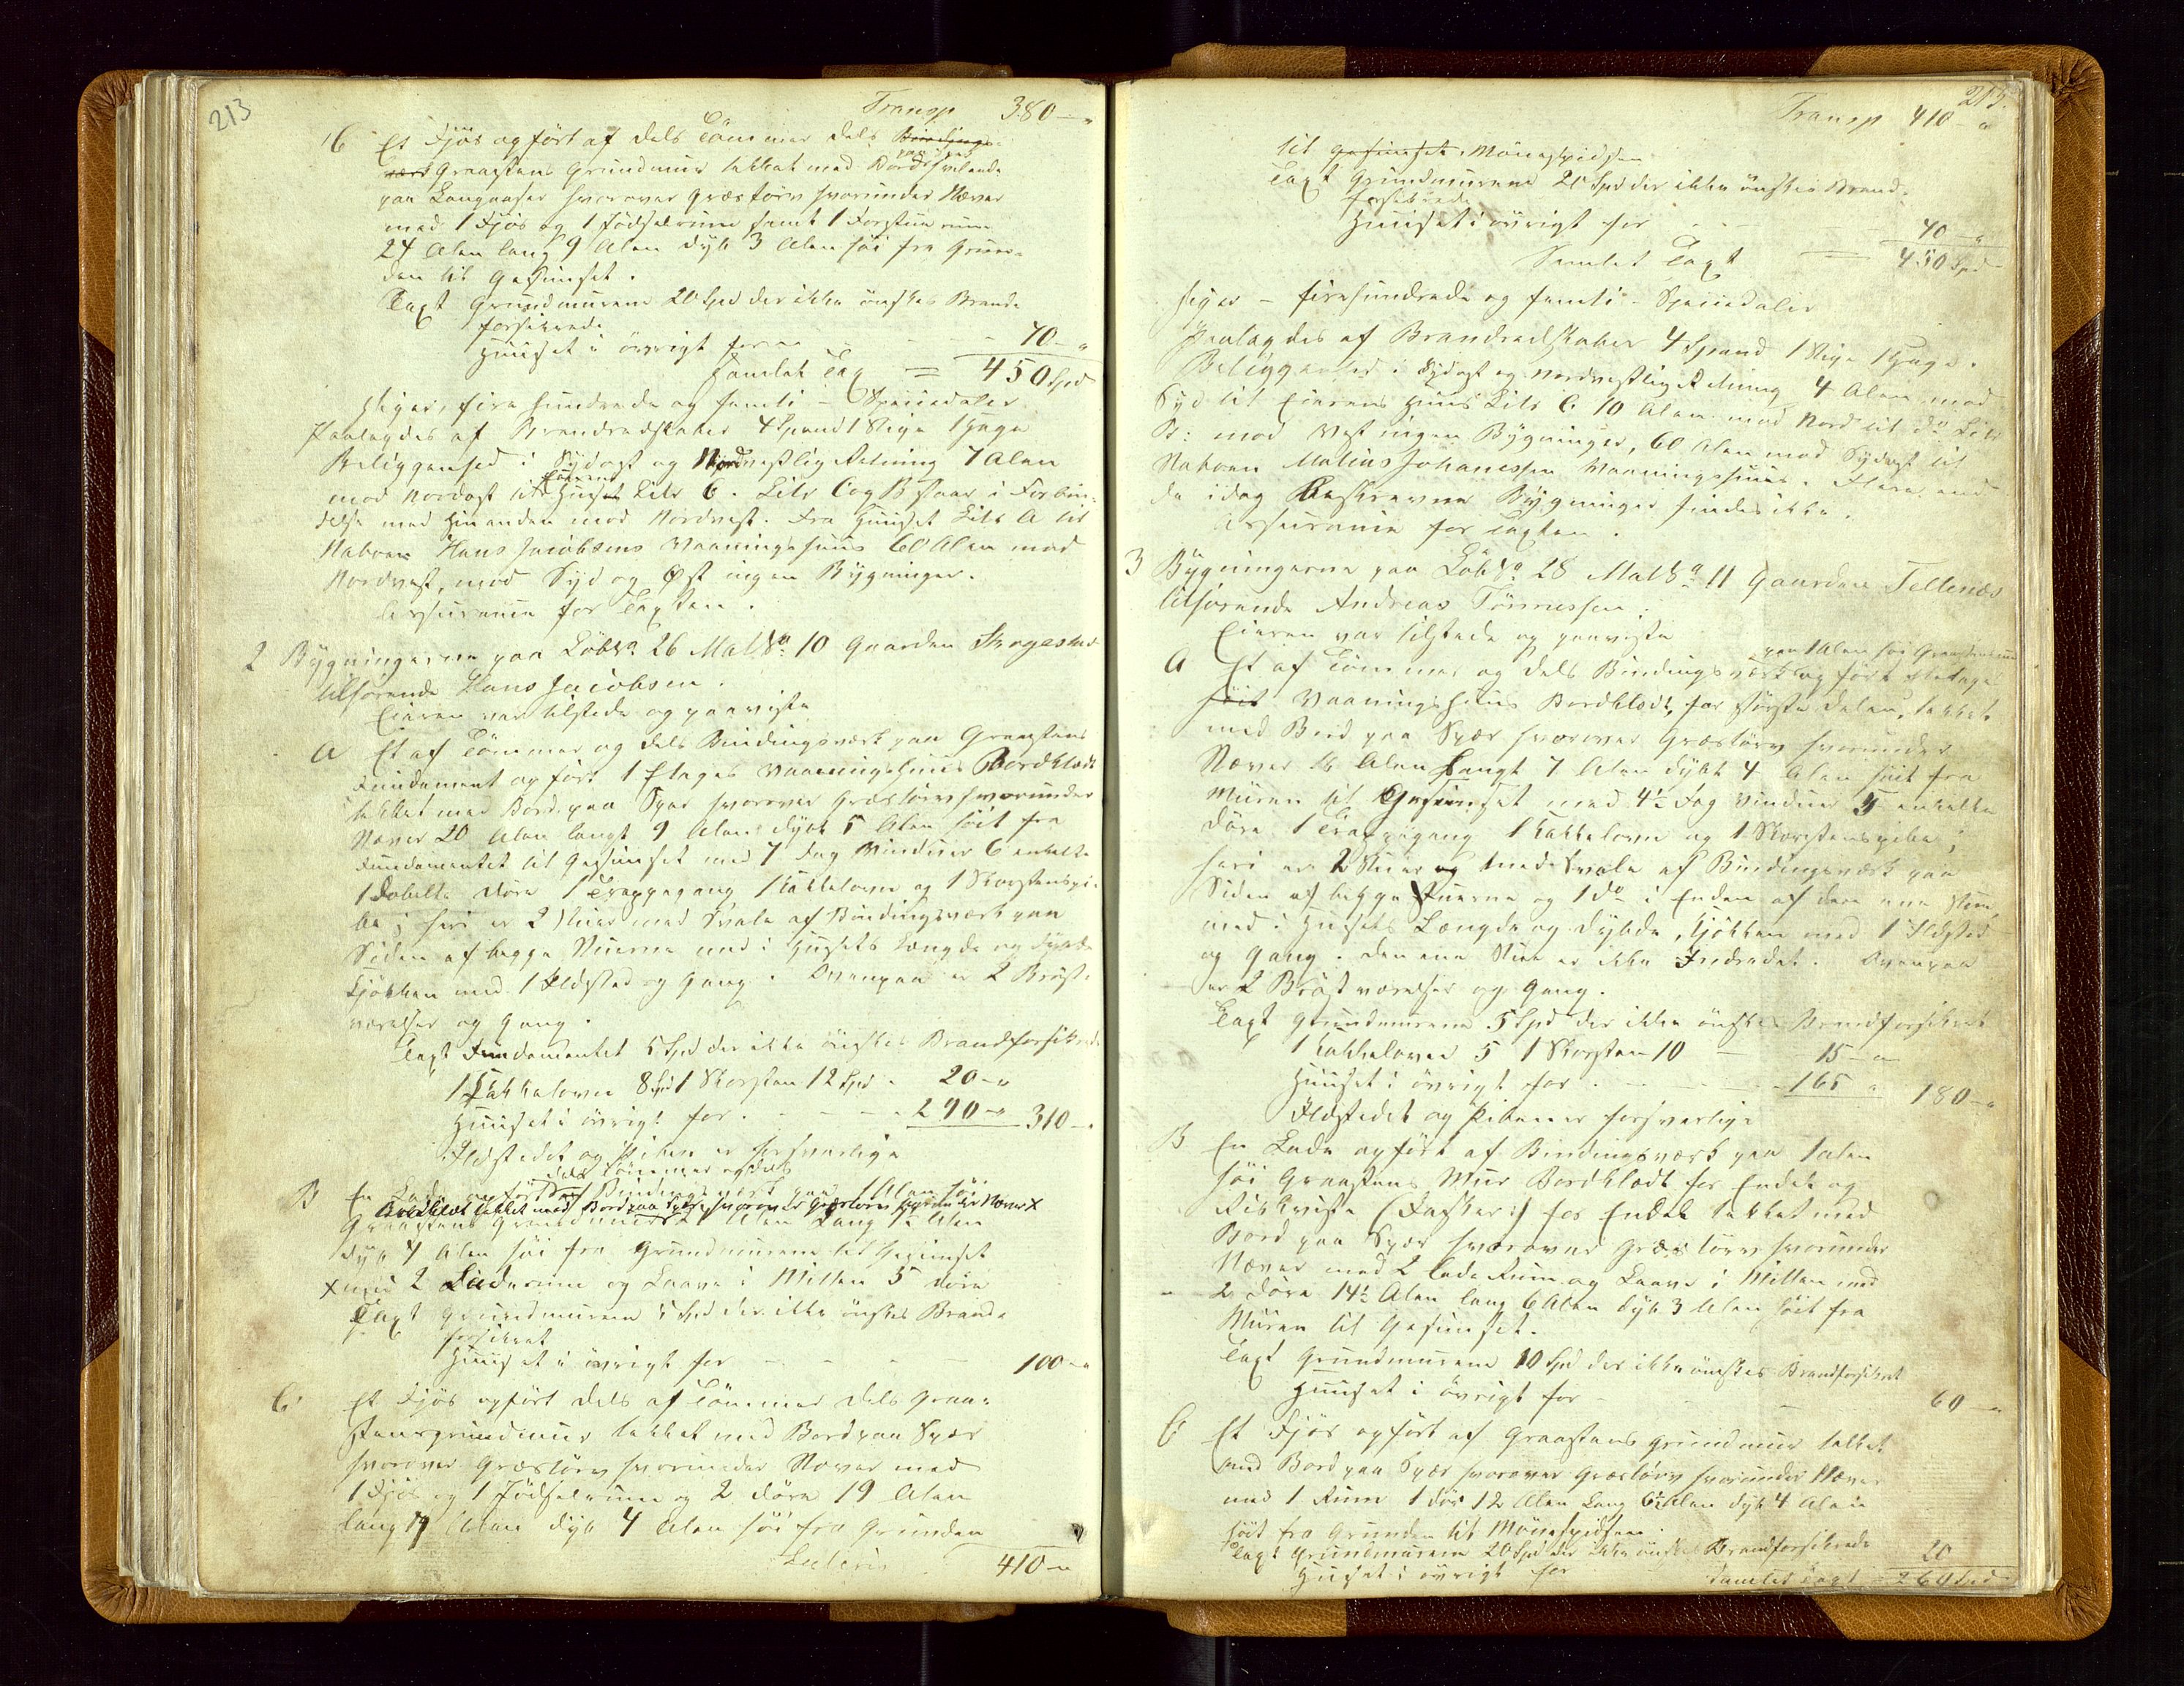 213
Transp 380 — "
C Et Fjös opfört af dels Tömmer dels Bindings-
værk Graastens Grundmuur tækket med Bord paa Spær hvilende
paa Langaaser hvorover Græstörv hvorunder Næver
med 1 Fjös og 1 Födselrum samt 1 Forstue rum
24 Alen lang 9 Alen dyb 3 Alen höi fra Grun-
den til Gesimset.
Taxt Grundmurene 20 Spd der ikke önskes Brand-
forsikrede
Huuset i övrigt for — 70 — "
Samlet Tax = 450 Spd
siger, fire hundrede og femti – Speciedaler
Paalagdes af Brandredskaber 4 Spand 1 Stige 1 Hage
Beliggenhed i Sydost og Nordvestlig Retning 7 Alen
mod Nordost til Eierens Huus Litr C. Litr C og B staar i Forbin-
delse med hinanden mod Nordvest. Fra Huuset Litr A til
Naboen Hans Jacobsens Vaaningshuus 60 Alen mod
Nordvest, mod Syd og Öst ingen Bygninger.
Assurance for Taxten.
2 Bygningerne paa Löb No 26 Mat No 10 Gaarden Skogestad
tilhörende Hans Jacobsen.
Eieren var tilstede og paaviste
A Et af Tömmer og dels Bindingsværk paa Graastens
Fundament opfört 1 Etages Vaaningshuus Bordklædt
tækket med Bord paa Spær hvorover Græstörv hvorunder
Næver 20 Alen langt 9 Alen dybt 5 Alen höit fra
Fundamentet til Gesimset med 7 Fag Vinduer 6 enkelte
1 dobelte döre 1 Trappegang 1 Kakkelovn og 1 Skorstenspi-
be; heri er 2 Stuer med Svale af Bindingsværk paa
Siden af begge Stuerne med i Husets Længde og Dybde
Kjökken med 1 Ildsted og Gang. Ovenpaa er 2 Bröst-
værelser og Gang.
Taxt Fundamentet 5 Spd der ikke önskes Brandforsikrede
1 Kakkelovn 8 Spd 1 Skorsten 12 Spd. 20 — "
Huuset i övrigt for . — 290 — " 310 — "
Ildstedet og Piben er forsvarlige
dels Tömmer og dels
B En Lade opfört af Bindingsværk paa 1 Alen höi
Bordklædt tækket med Bord paa Spær hvorover Græstörv hvorunder Næver X
Graastens Grundmuur Alen lang Alen
dyb 4 Alen höi fra Grundmurene til Gesimset
X med 2 Laderum og Laave i Mitten 5 döre
Taxt Grundmurene 5 Spd der ikke önskes Brand-
forsikret
Huuset i övrigt for — 100 — "
C Et Fjös opfört dels af Tömmer dels Graa-
stensgrundmuur tækket med Bord paa Spær
hvorover Græstörv hvorunder Næver med
1 Fjös og 1 Födselrum og 2 döre 19 Alen
lang 9 Alen dyb 4 Alen höi fra Grunden
Lateris 410 — "
213.
Transp 410 — "
til Gesimset Mönespidsen
Taxt Grundmurene 20 Spd der ikke önskes Brand-
forsikrede
Huuset i övrigt for — 40 — "
Samlet Taxt = 450 Spd
siger – firehundrede og femti – Speciedaler
Paalagdes af Brandredskaber 4 Spand 1 Stige 1 Hage.
Beliggenhed i Sydost og Nordvestlig Retning 4 Alen mod
Syd til Eierens Huus Litr C. 10 Alen mod Nord til do Litr
B: mod Vest ingen Bygninger, 60 Alen mod Sydvest til
Naboen Matias Johanessen Vaaningshuus. Flere end
de idag beskrevne Bygninger findes ikke.
Assurance for Taxten.
3 Bygningerne paa Löb No 28 Mat No 11 Gaarden Tellenæs
tilhörende Andreas Tönnessen.
Eieren var tilstede og paaviste
paa 1 Alen höi Graastensmuur
A Et af Tömmer og dels Bindingsværk opfört 1 Etage
höit Vaaningshuus Bordklædt for störste delen, tækket
med Bord paa Spær hvorover Græstörv hvorunder
Næver 16 Alen Langt 7 Alen dybt 4 Alen höit fra
Muren til Gesimset med 4½ Fag Vinduer 5 enkelte
döre 1 Trappegang 1 Kakkelovn og 1 Skorstenspibe;
heri er 2 Stuer og med Svale af Bindingsværk paa
Siden af begge Stuerne og 1 do i Enden af dere ene Stue
med i Husets Længde og Dybde, Kjökken med 1 Ildsted
og Gang. den ene Stue er ikke Indredet. Ovenpaa
er 2 Bröstværelser og Gang.
Taxt Grundmurene 5 Spd der ikke önskes Brandforsikret
1 Kakkelovn 5 1 Skorsten 10 — 15 — "
Huuset i övrigt for . — 165 " 180 — "
Ildstedet og Piben er forsvarlige
B En Lade opfört af Bindingsværk paa 1 Alen
höi Graastens Muur Bordklædt for Endel og
Riskviste (Fasker:) for Endel tækket med
Bord paa Spær hvorover Græstörv hvorunder
Næver med 2 lade Rum og Laave i Mitten med
2 döre 14½ Alen lang 6 Alen dyb 3 Alen höit fra
Muren til Gesimset.
Taxt Grundmurene 10 Spd der ikke önskes Brandforsikret
Huuset i övrigt for — 60 — "
C Et Fjös opfört af Graastens Grundmuur tækket
med Bord paa Spær hvorover Græstörv hvorunder Næver
med 1 Rum 1 dör 12 Alen Lang 6½ Alen dyb 4 Alen
höit fra Grunden til Mönespidsen.
Taxt Grundmurene 20 Spd der ikke önskes Brandforsikrede
Huuset i övrigt for 20
Samlet Taxt = 260 Spd